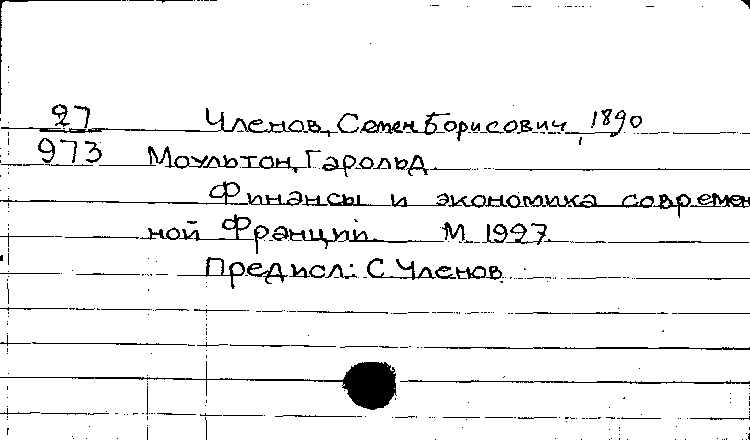 27 Членов, Семен Борисович, 1890
973 Моультон, Гарольд.
Финансы и экономика современ
ной Франции. М. 1927.
Предисл: С. Членов